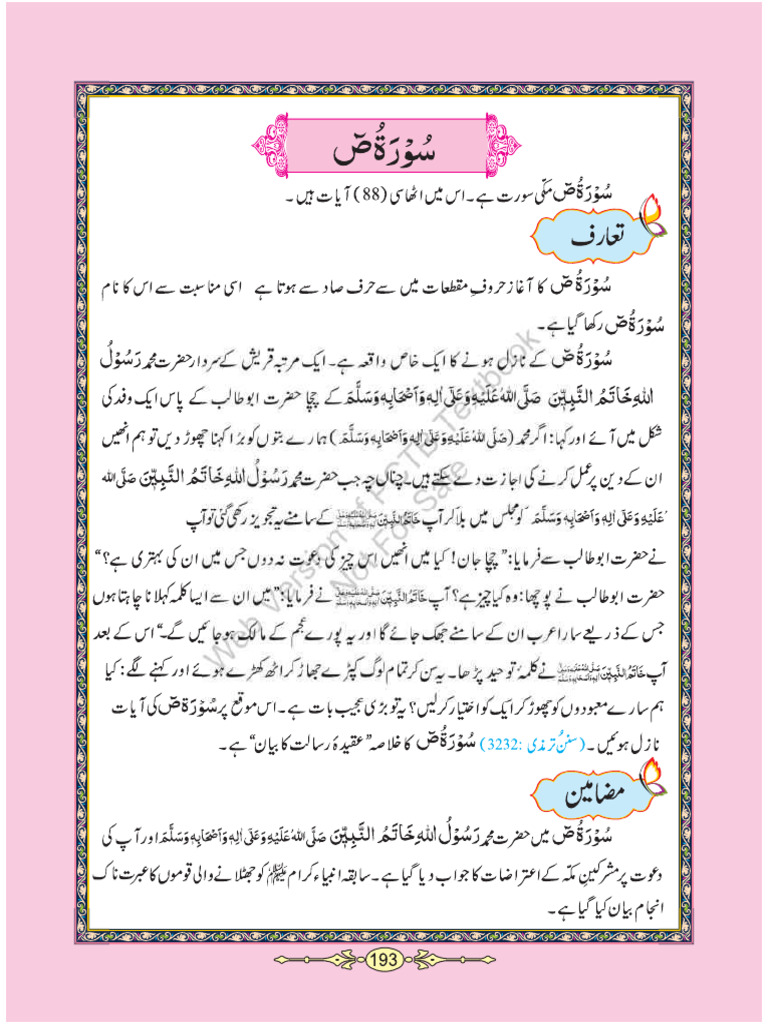 سُوْرَۃُ صٓ
سُوْرَۃُ صٓ مکّی سورت ہے۔ اس میں اٹھاسی (88) آیات ہیں۔
تعارف
سُوْرَۃُ صٓ کا آغاز حروفِ مقطعات میں سے حرف صاد سے ہوتا ہے اسی مناسبت سے اس کا نام
سُوْرَۃُ صٓ رکھا گیا ہے۔
سُوْرَۃُ صٓ کے نازل ہونے کا ایک خاص واقعہ ہے۔ ایک مرتبہ قریش کے سردار حضرت محمد رَسُوْلُ
اللہِ خَاتَمُ النَّبِیّٖنَ صَلَّی اللہُ عَلَیْہِ وَعَلٰی اٰلِہٖ وَاَصْحَابِہٖ وَسَلَّمَ کے چچا حضرت ابوطالب کے پاس ایک وفد کی
شکل میں آئے اور کہا: اگر محمد (صَلَّی اللہُ عَلَیْہِ وَعَلٰی اٰلِہٖ وَاَصْحَابِہٖ وَسَلَّمَ) ہمارے بتوں کو بُرا کہنا چھوڑ دیں تو ہم انھیں
ان کے دین پر عمل کرنے کی اجازت دے سکتے ہیں۔ چناں چہ جب حضرت محمد رَسُوْلُ اللہِ خَاتَمُ النَّبِیّٖنَ صَلَّی اللہُ
عَلَیْہِ وَعَلٰی اٰلِہٖ وَاَصْحَابِہٖ وَسَلَّمَ کو مجلس میں بلا کر آپ خَاتَمُ النَّبِیّٖنَ صَلَّی اللہُ عَلَیْہِ وَعَلٰی اٰلِہٖ وَاَصْحَابِہٖ وَسَلَّمَ کے سامنے یہ تجویز رکھی گئی تو آپ
نے حضرت ابوطالب سے فرمایا: ”چچا جان! کیا میں انھیں اس چیز کی دعوت نہ دوں جس میں ان کی بہتری ہے؟“
حضرت ابوطالب نے پوچھا: وہ کیا چیز ہے؟ آپ خَاتَمُ النَّبِیّٖنَ صَلَّی اللہُ عَلَیْہِ وَعَلٰی اٰلِہٖ وَاَصْحَابِہٖ وَسَلَّمَ نے فرمایا: ”میں ان سے ایسا کلمہ کہلانا چاہتا ہوں
جس کے ذریعے سارا عرب ان کے سامنے جھک جائے گا اور یہ پورے عجم کے مالک ہو جائیں گے۔“ اس کے بعد
آپ خَاتَمُ النَّبِیّٖنَ صَلَّی اللہُ عَلَیْہِ وَعَلٰی اٰلِہٖ وَاَصْحَابِہٖ وَسَلَّمَ نے کلمۂ توحید پڑھا۔ یہ سن کر تمام لوگ کپڑے جھاڑ کر اٹھ کھڑے ہوئے اور کہنے لگے: کیا
ہم سارے معبودوں کو چھوڑ کر ایک کو اختیار کر لیں؟ یہ تو بڑی عجیب بات ہے۔ اس موقع پر سُوْرَۃُ صٓ کی آیات
نازل ہوئیں۔ (سننِ ترمذی: 3232) سُوْرَۃُ صٓ کا خلاصہ ”عقیدۂ رسالت کا بیان“ ہے۔
مضامین
سُوْرَۃُ صٓ میں حضرت محمد رَسُوْلُ اللہِ خَاتَمُ النَّبِیّٖنَ صَلَّی اللہُ عَلَیْہِ وَعَلٰی اٰلِہٖ وَاَصْحَابِہٖ وَسَلَّمَ اور آپ کی
دعوت پر مشرکینِ مکّہ کے اعتراضات کا جواب دیا گیا ہے۔ سابقہ انبیاء کرام کو جھٹلانے والی قوموں کا عبرت ناک
انجام بیان کیا گیا ہے۔
Web Version of PCTB Textbook
Not For Sale
193